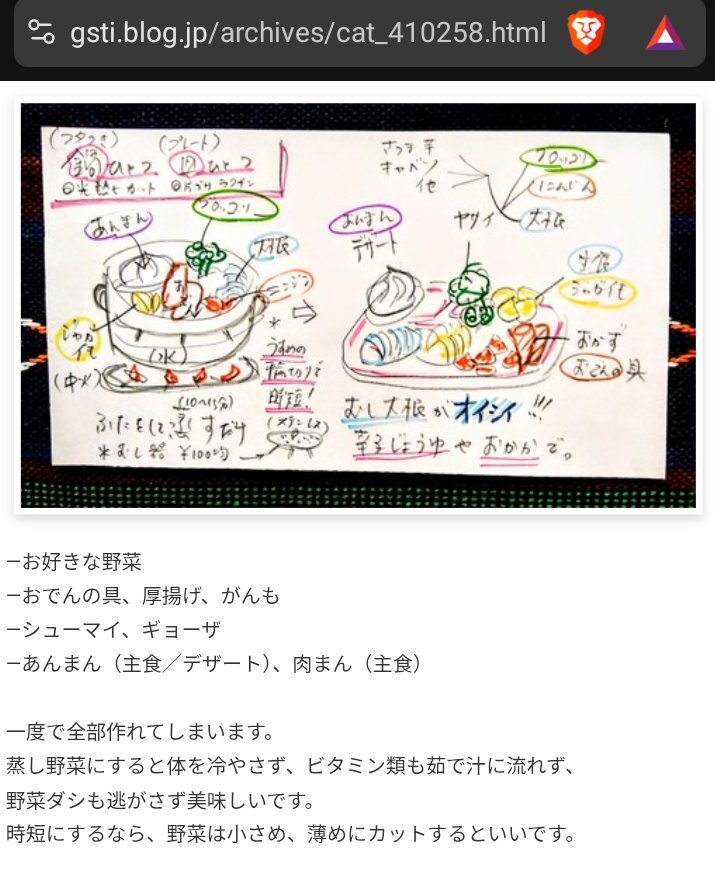 gsti.blog.jp/archives/cat_410258.html
(フタつき)
(プレート)
鍋ひとつ
皿ひとつ
光熱ヒカット
あんまん
ブロッコリ
大根
ニンジン
じゃが
(水)
(中火)
(10〜15分)
ふたをして蒸すだけ
*むし器 ¥100均
(ステンレス)
*
うすめの
輪切りで
時短!
さつま芋
キャベツ
他
ブロッコリ
にんじん
大根
ヤサイ
あんまん
デザート
主食
おかず
おでんの具
むし大根がオイシイ!!!
辛子じょうゆやおかかで。
−お好きな野菜
−おでんの具、厚揚げ、がんも
−シューマイ、ギョーザ
−あんまん（主食／デザート）、肉まん（主食）
一度で全部作れてしまいます。
蒸し野菜にすると体を冷やさず、ビタミン類も茹で汁に流れず、
野菜ダシも逃がさず美味しいです。
時短にするなら、野菜は小さめ、薄めにカットするといいです。